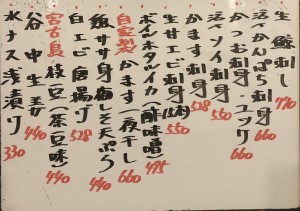 生鯨刺し 770
活〆かんぱち刺身 660
かつお刺身 ユッケ 660
活〆ソイ刺身 550
かます刺身 528
生サザエ刺身 550
ボイルホタルイカ(酢味噌) 495
自家製 かます(一夜干し) 660
鱚ササ身梅しそ天ぷら 440
白エビ唐揚げ 528
宮古島 枝豆(茶豆味) 440
谷中生姜 440
水ナス浅漬け 330